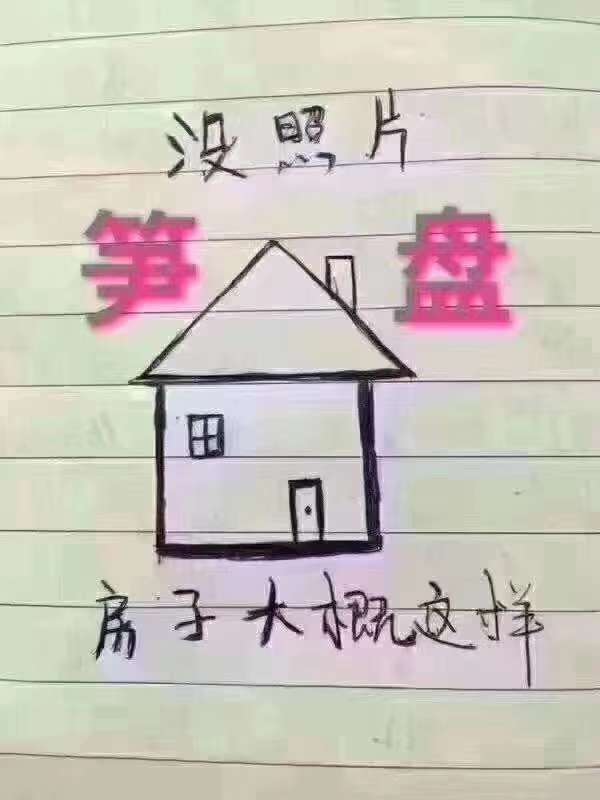 没照片
笋盘
房子大概这样